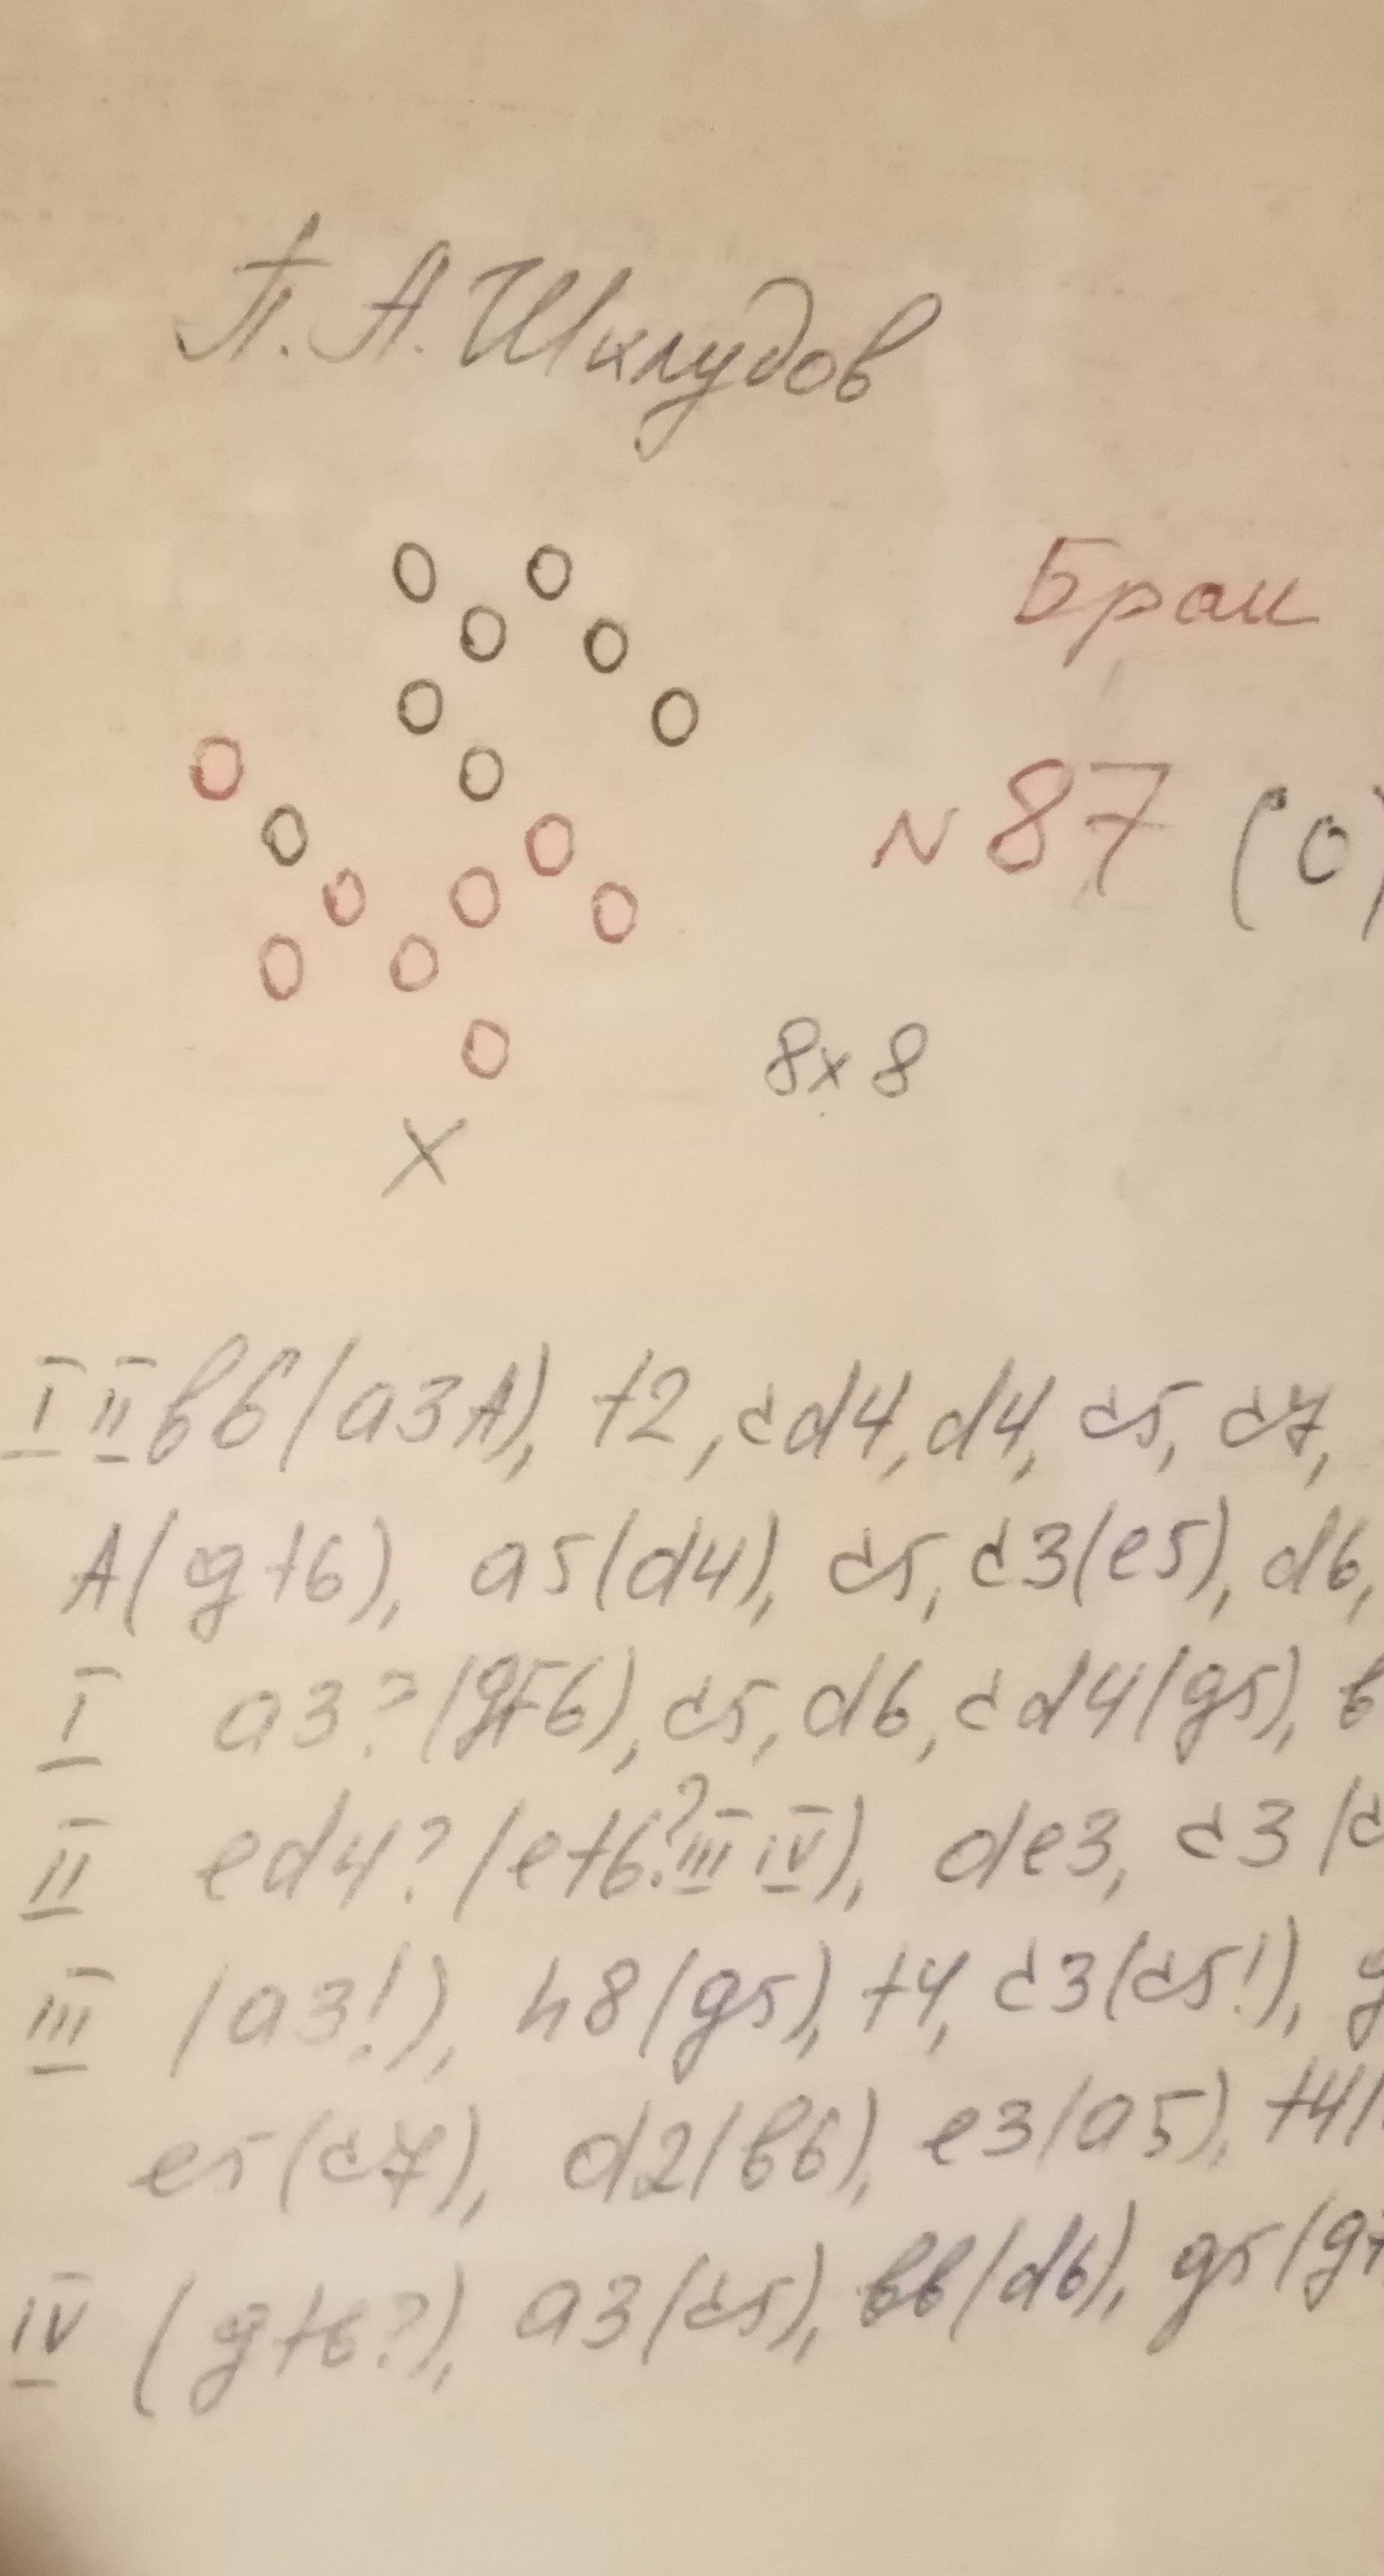 П. А. Шклудов
Брак
N 87 (0)
8x8
X
I II b6(a3A), f2, cd4, d4, c5, c7,
A(gf6), a5(d4), c5, c3(e5), d6,
I a3?(gf6), c5, d6, cd4(g5), b
II ed4?(ef6? III IV), de3, c3(c
III (a3!), h8(g5), f4, c3(c5!), g
e5(c7), d2(b6), e3(a5), f4(
IV (gf6?), a3(c5), b6(d6), g5(g7